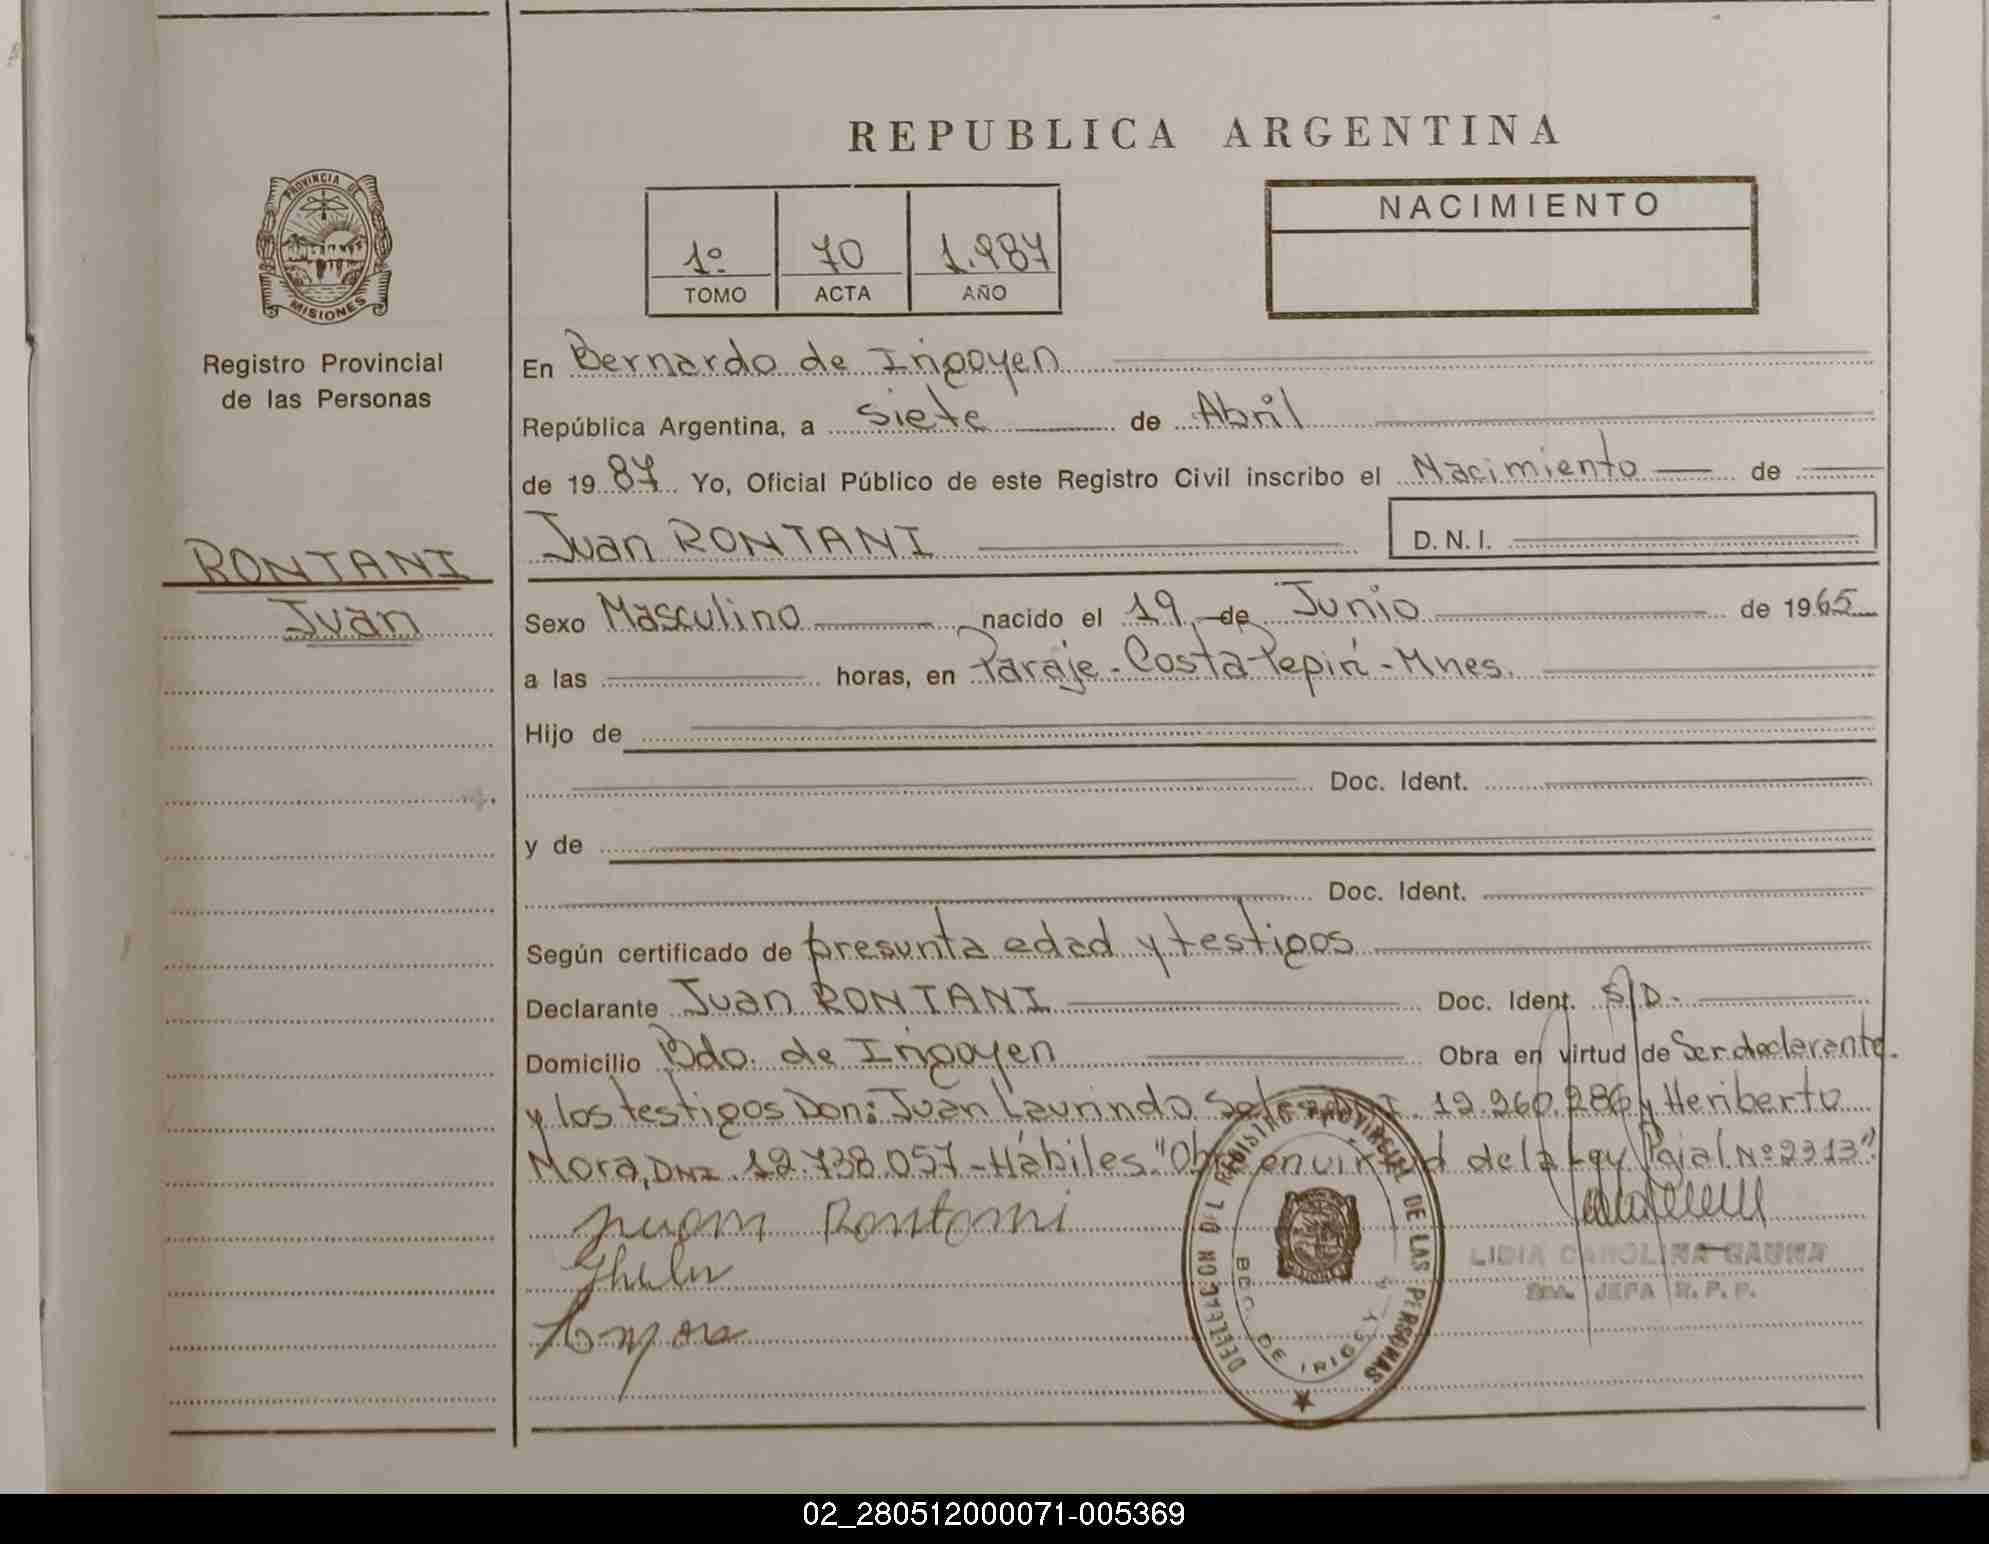 REPUBLICA ARGENTINA
PROVINCIA DE
MISIONES
Registro Provincial
de las Personas
RONTANI
Juan
1º 70 1.987
TOMO ACTA AÑO
NACIMIENTO
En Bernardo de Irigoyen
República Argentina, a siete de Abril
de 1987 Yo, Oficial Público de este Registro Civil inscribo el Nacimiento de
Juan RONTANI D.N.I.
Sexo Masculino nacido el 19 de Junio de 1965
a las horas, en Paraje-Costa Pepirí-Mnes.
Hijo de
Doc. Ident.
y de
Doc. Ident.
Según certificado de presunta edad y testigos
Declarante Juan RONTANI Doc. Ident. S/D.
Domicilio Bdo. de Irigoyen Obra en virtud de Ser declarante.
y los testigos Don: Juan Laurindo 12.260.286 y Heriberto
Mora, DNI. 12.738.057-Hábiles."Obra en virtud de la Ley Pcial Nº 2313".
Juan Rontani
LIDIA CAROLINA GAUNA
JEFA R.P.P.
DELEGACION DEL REGISTRO PROVINCIAL DE LAS PERSONAS
BDO. DE IRIGOYEN
02_280512000071-005369